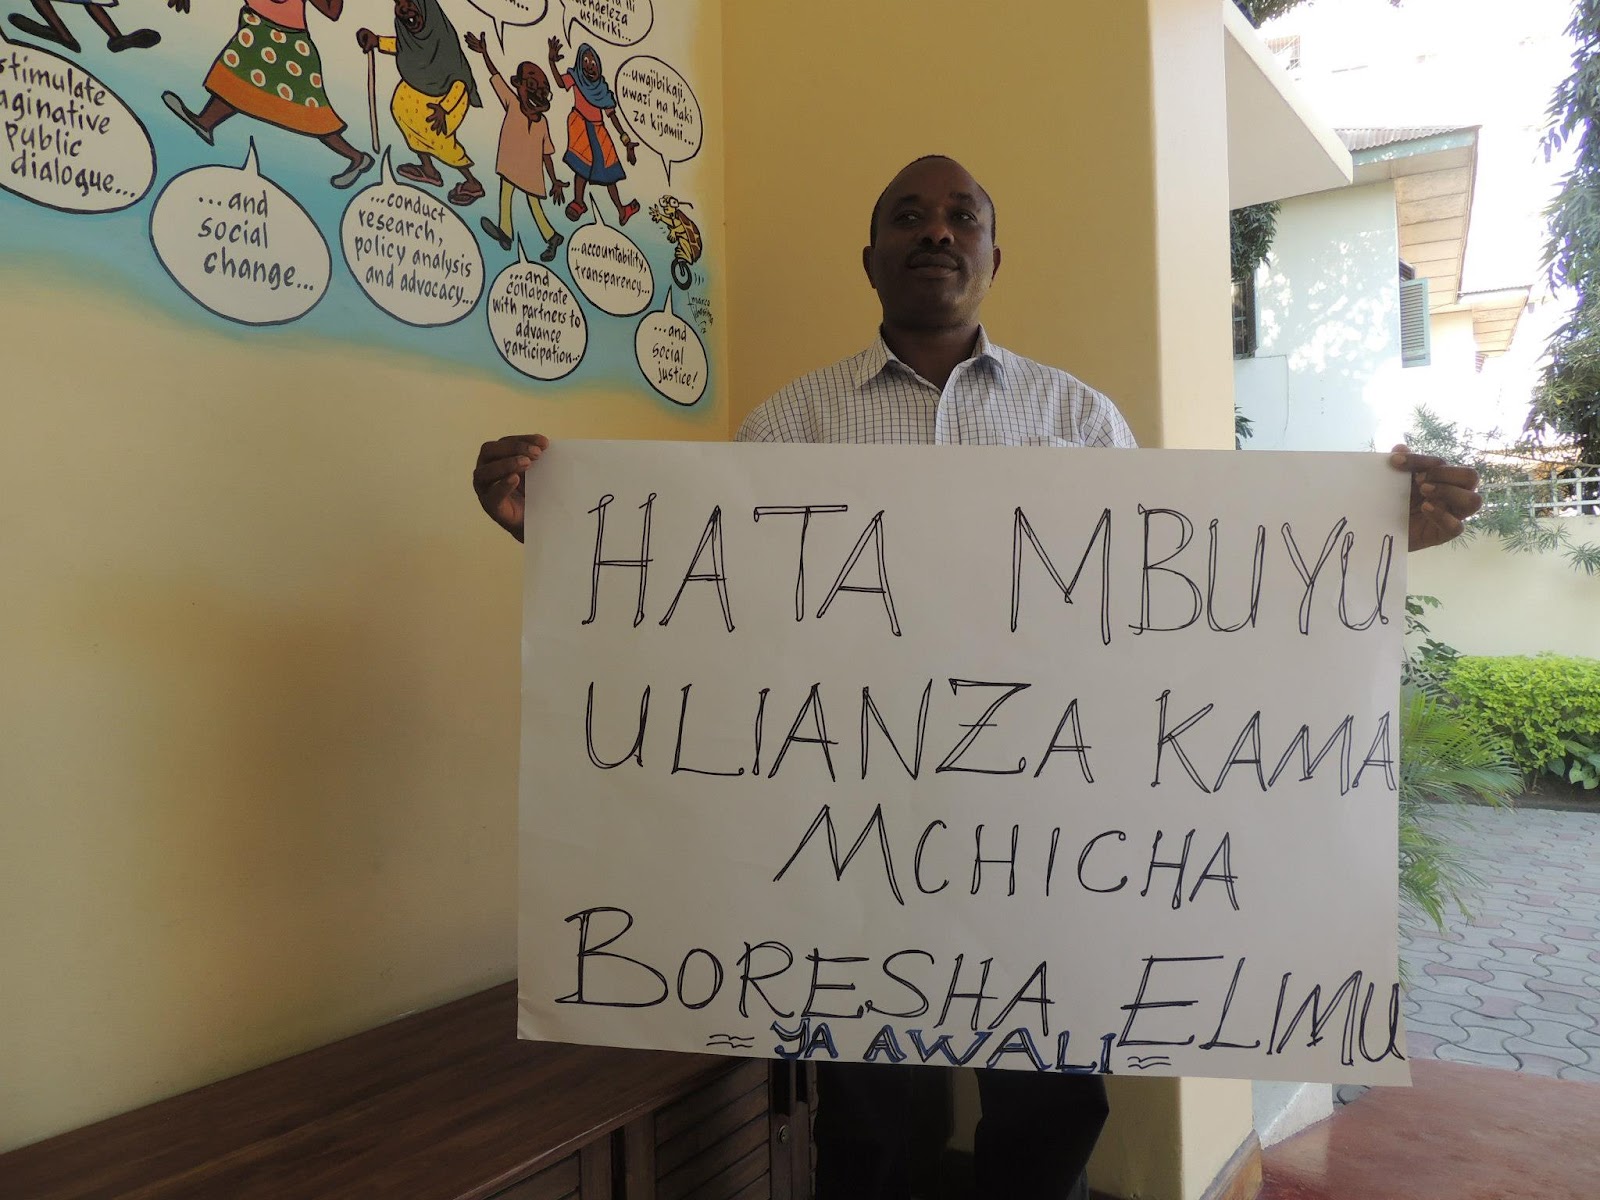 ili
ndeleza
ushiriki...
...uwajibikaji,
uwazi na haki
za kijamii...
stimulate
aginative
public
dialogue...
...and
social
change...
...conduct
research,
policy analysis
and advocacy...
...and
collaborate
with partners to
advance
participation...
...accountability,
transparency...
...and
social
justice!
HATA MBUYU
ULIANZA KAMA
MCHICHA
BORESHA ELIMU
YA AWALI